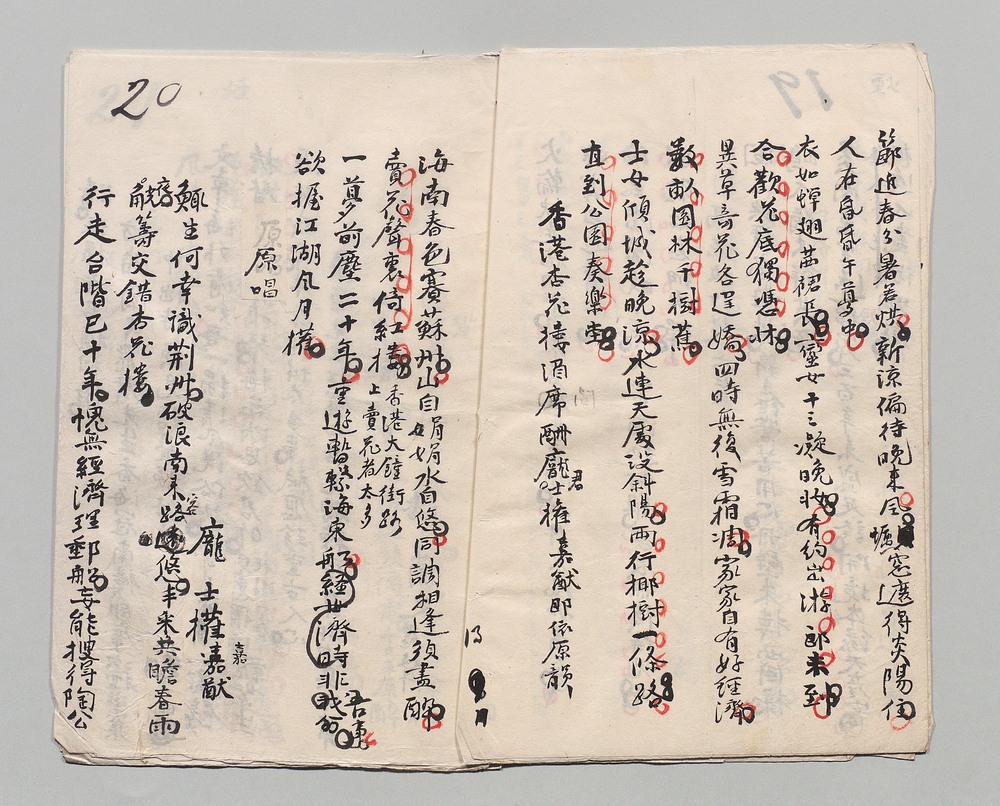 19
節近春分暑若烘新涼偏待晚來風蠣窓遮得炎陽
人在昏昏午夢中
衣如蟬翅茜裙長蜑女十三凝晚妝有約出游郎未到
合歡花底獨憑牀
異草奇花各逞嬌四時無復雪霜凋家家自有好經濟
數畝園林千樹蕉
士女傾城趁晚涼水連天處沒斜陽兩行椰樹一條路
直到公園奏樂堂
香港杏花樓酒席酬龐君士權嘉猷即依原韻
海南春色賽蘇州山自娟娟水自悠同調相逢須盡醉
賣花聲裏倚紅樓香港大鐘街路
上賣花者太多
一夢前塵二十年空遊暫繫海東船經世濟時非吾事
欲握江湖風月權
原唱
龐士權嘉猷
嘉
鯫生何幸識荊州破浪南來路悠丰采共瞻春雨
觥籌交錯杏花樓
行走台階已十年愧無經濟理郵船妄能搜得陶公
20